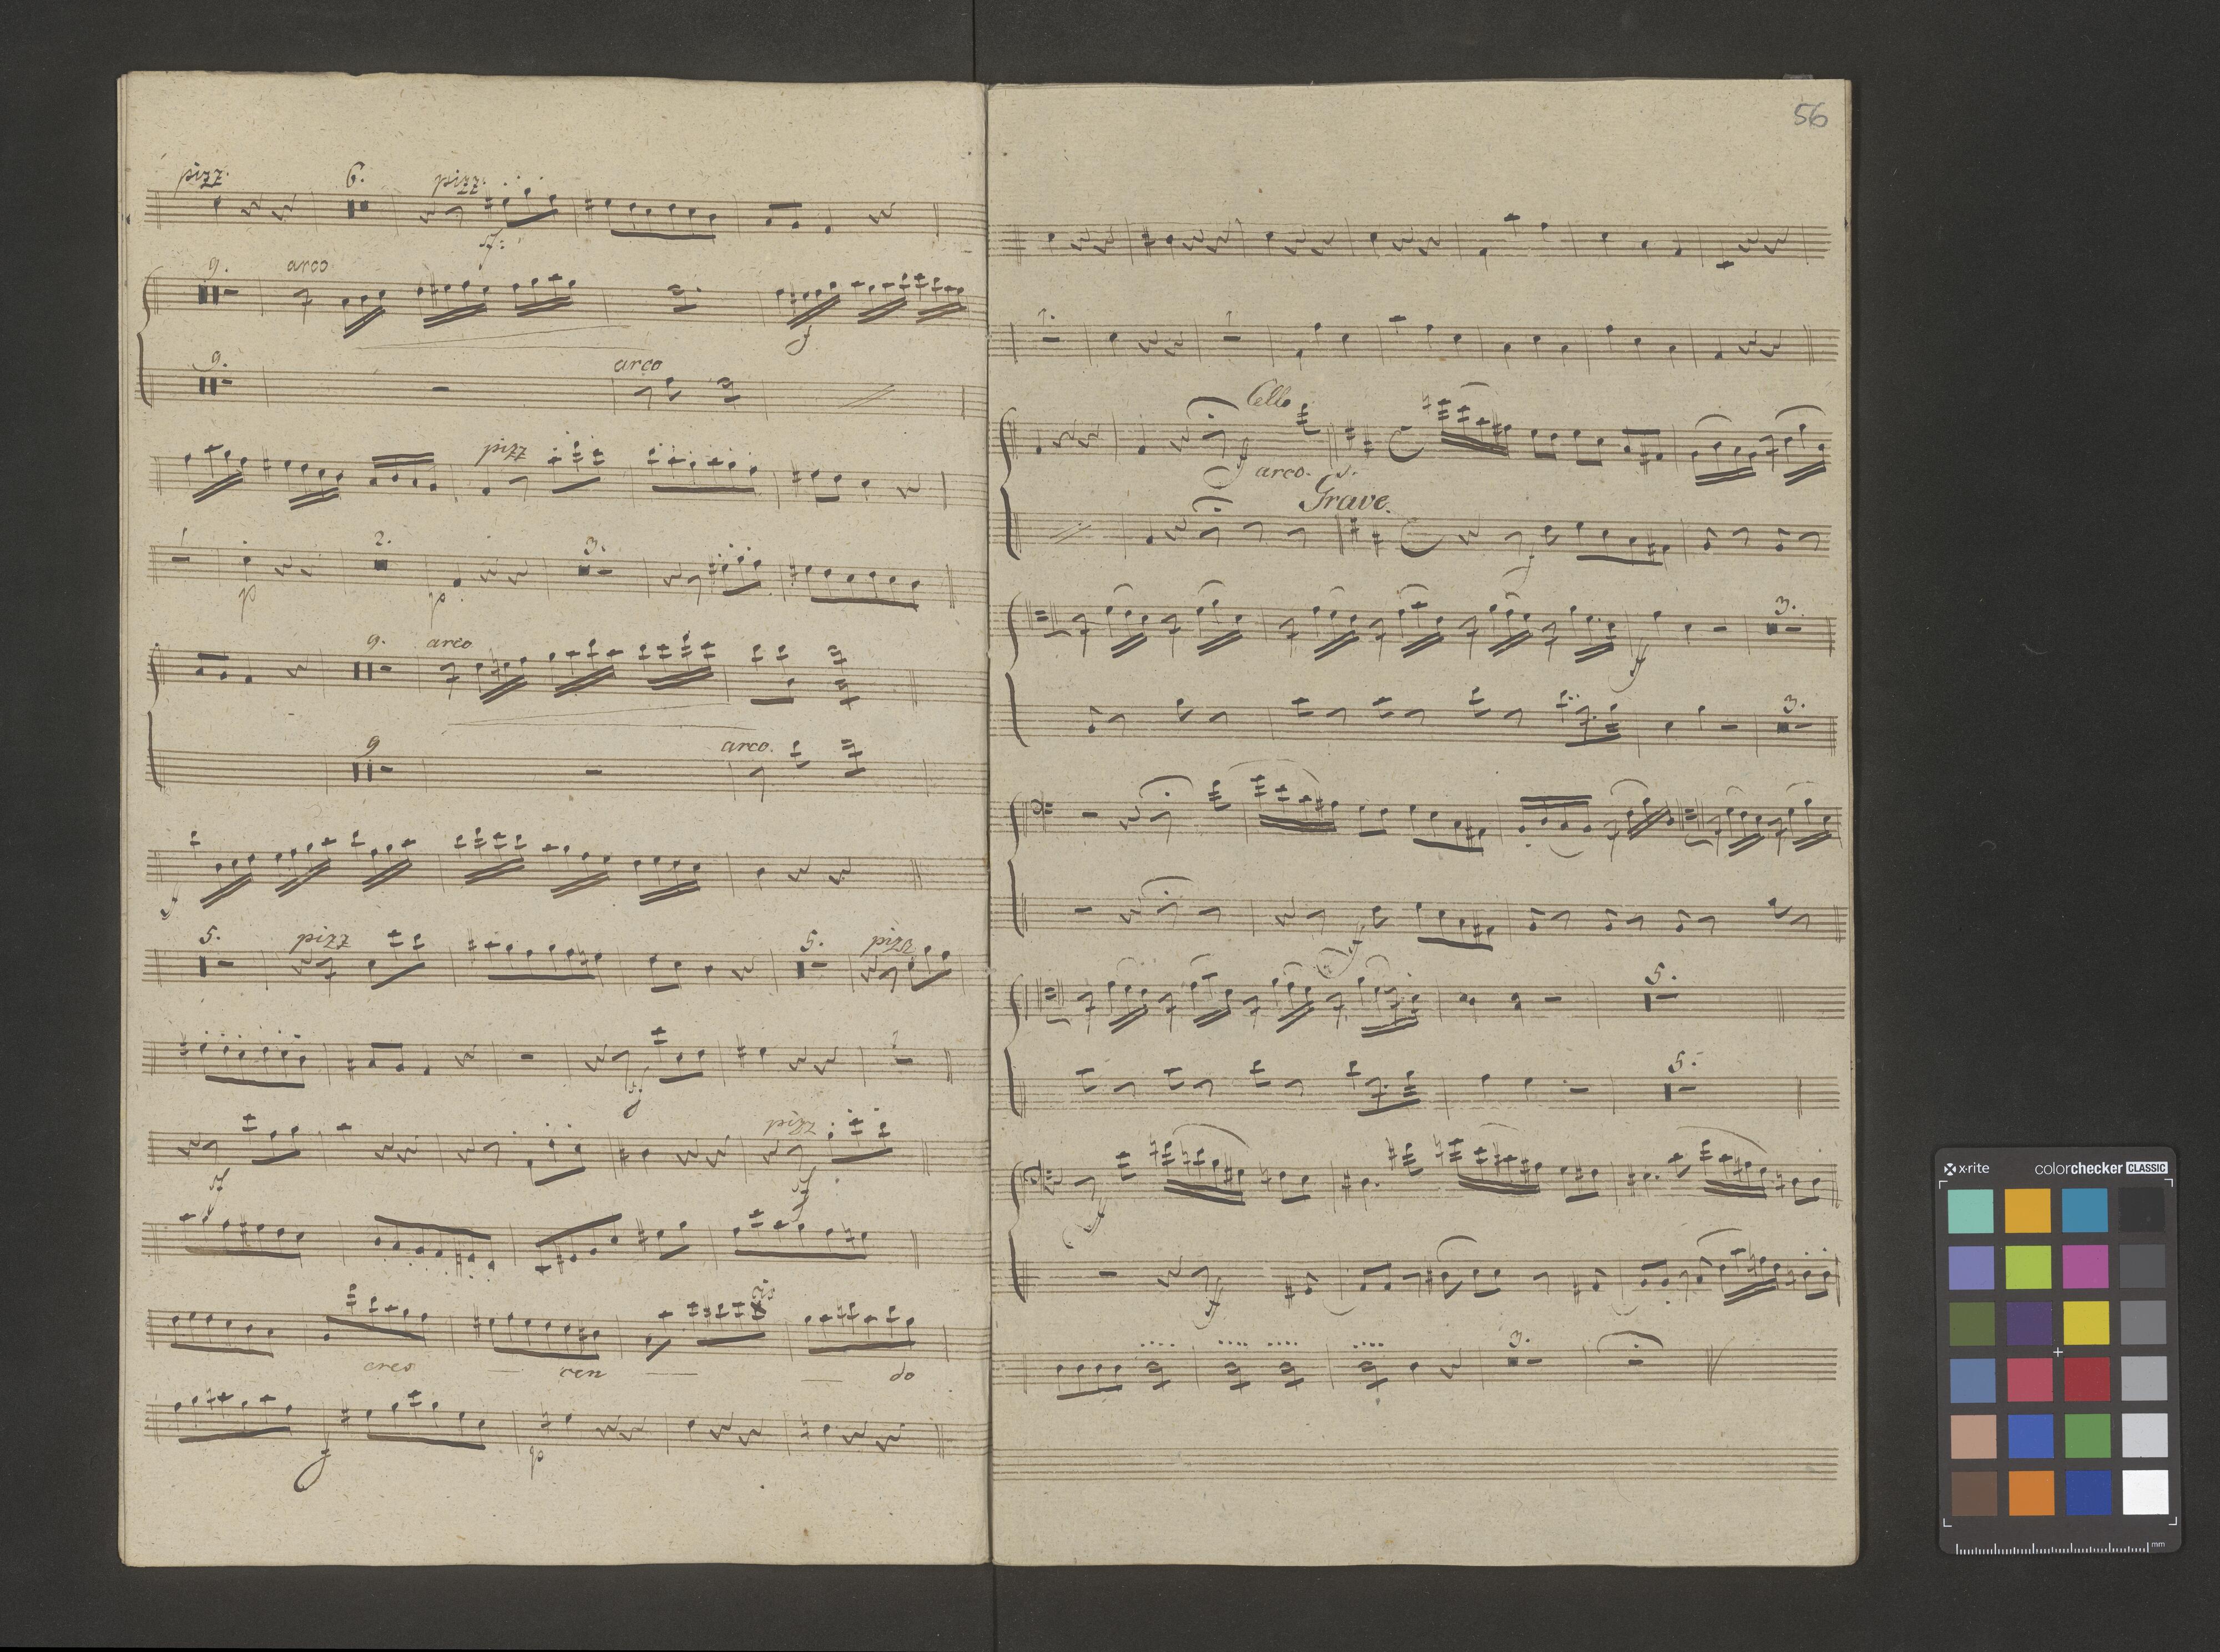 pizz. 6. pizz.
ff:
9. arco
f
9. arco
pizz
1 2. 3.
p p.
9. arco
9 arco.
f
5. pizz 5. pizz
ff
ff pizz
ff
cis
cres — cen — — do
f p
56
1. 1
Cello
f arco.
Grave.
f
3.
ff
3.
ff
5.
5.
ff
ff
3.
x-rite colorchecker CLASSIC
mm